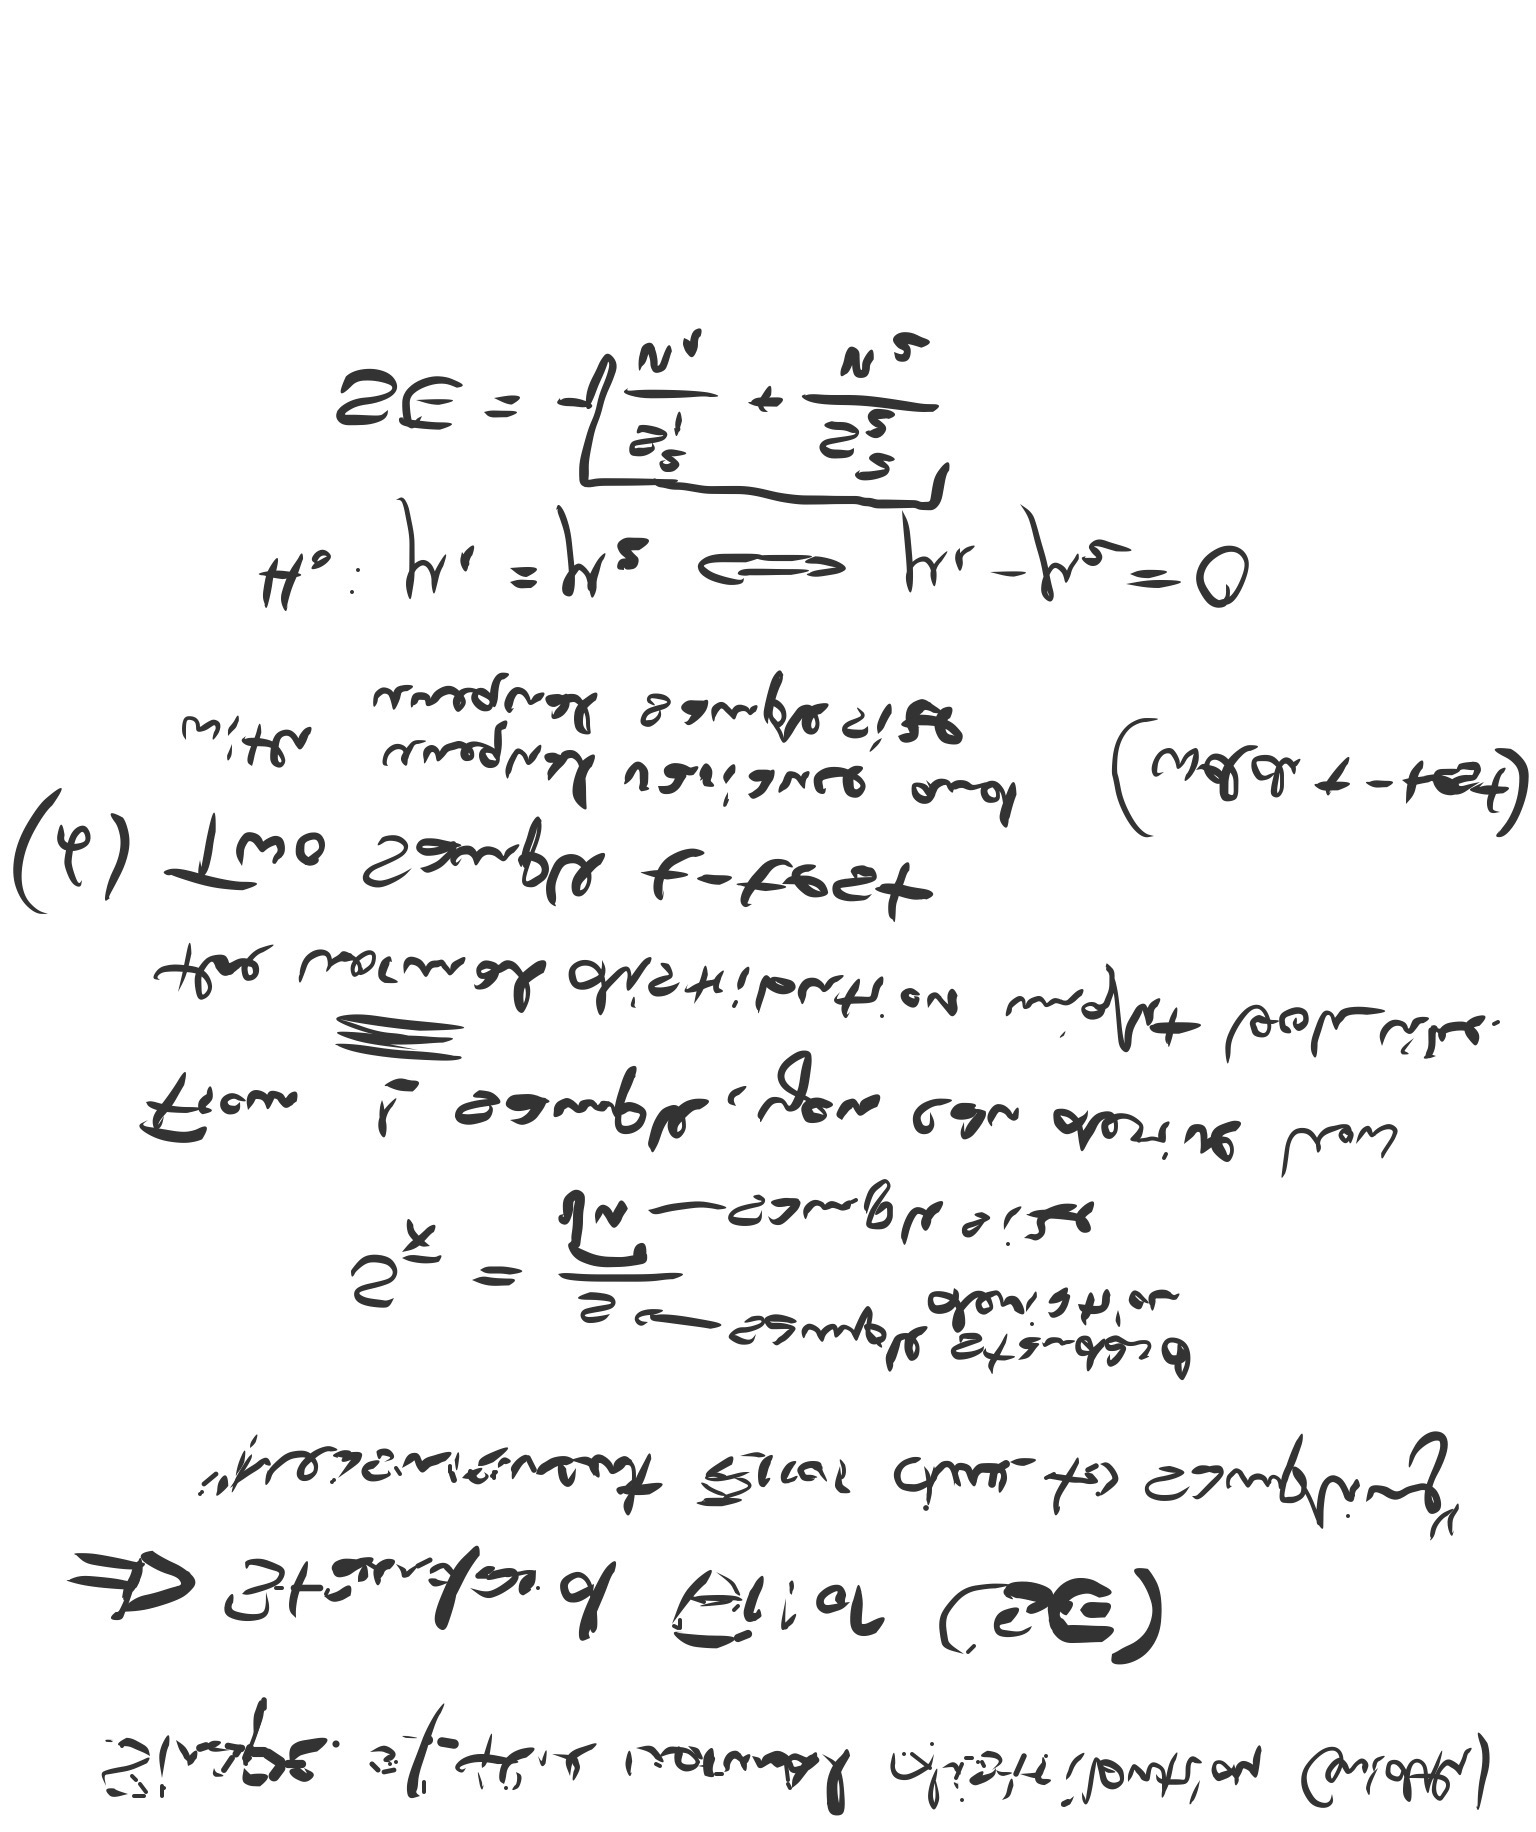 Shape of the normal distribution (width)
⇒ Standard Error (SE)
"Measurement Error due to sampling"
S_x̄ = s/√n
s ← sample standard deviation
n — sample size
From 1 sample, you can derive how
the normal distribution might look like.
(6) Two Sample t-test
with unequal variance and
unequal sample size
(welch t-test)
H₀: μ₁ = μ₂ ⟺ μ₁ - μ₂ = 0
SE = √(s₁²/n₁ + s₂²/n₂)